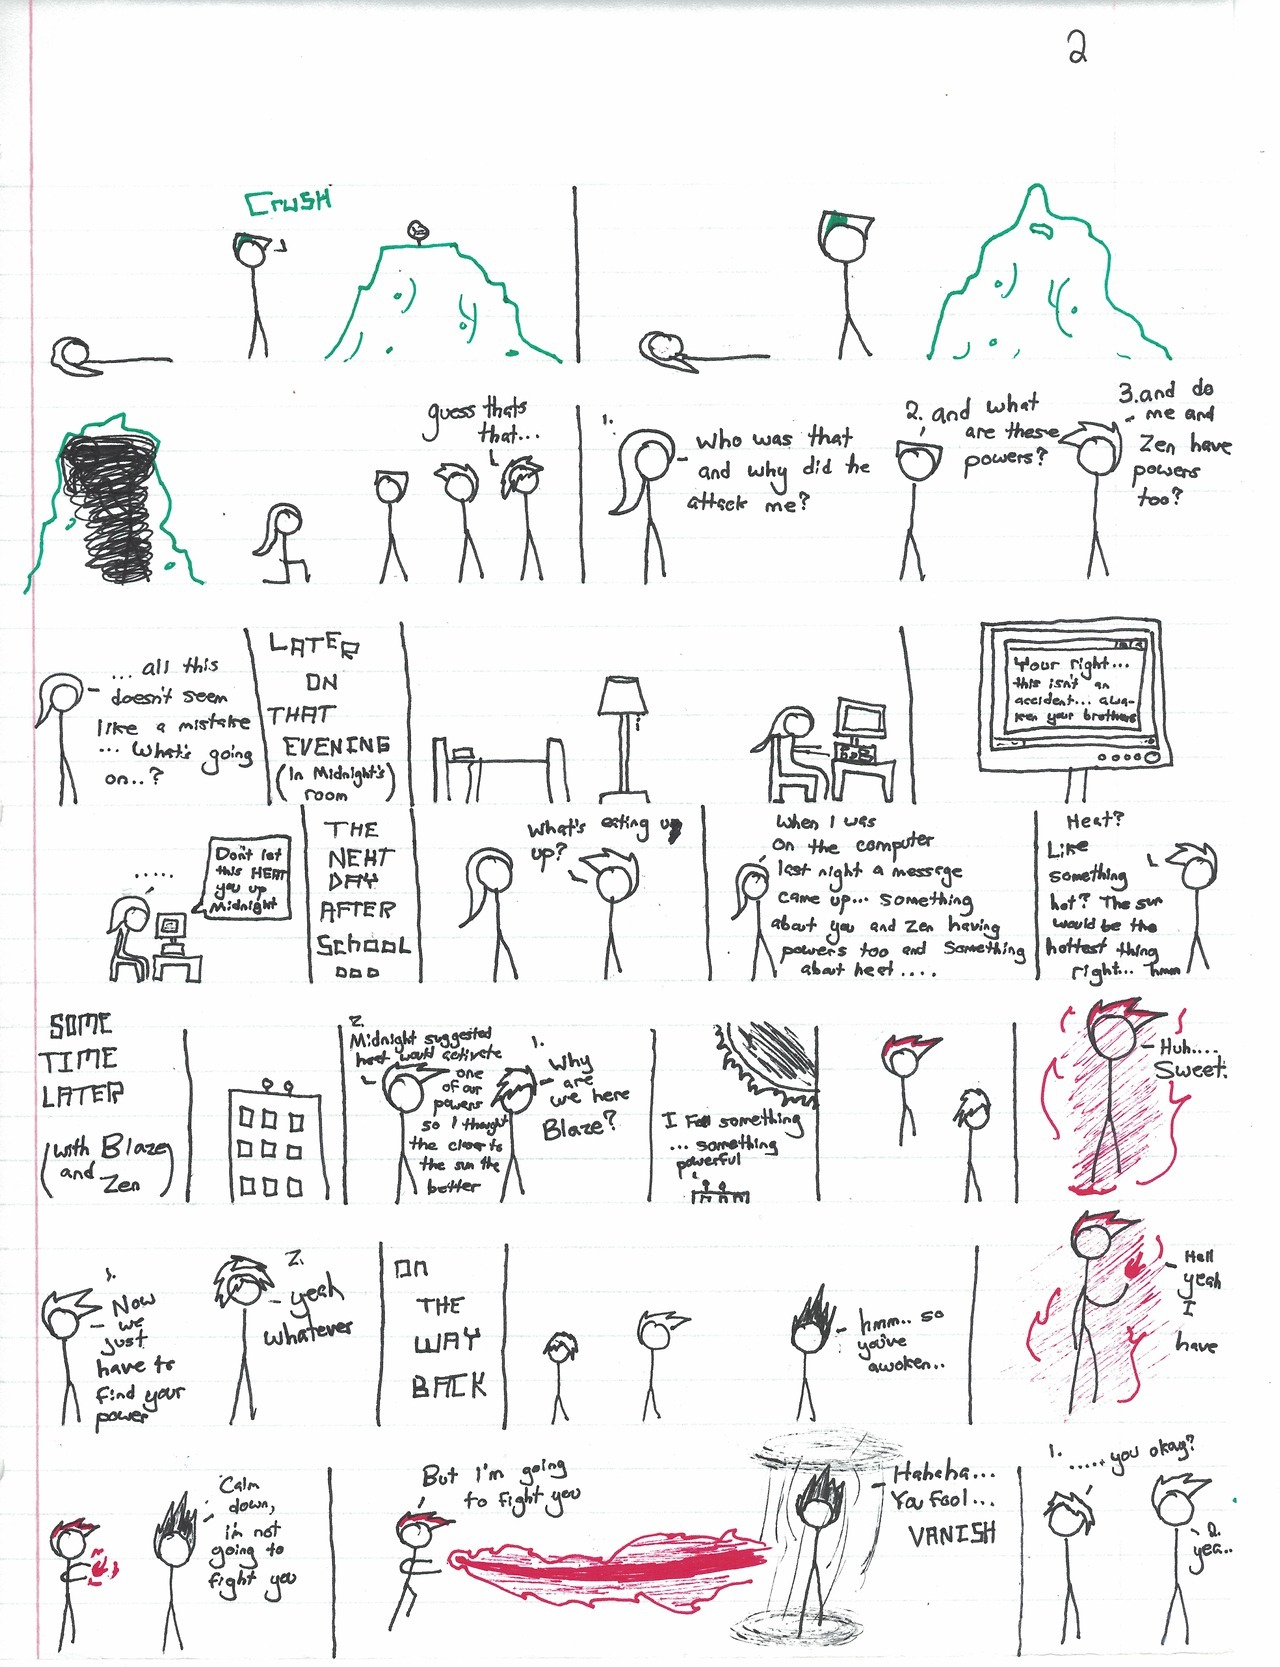 2
CruSH
guess thats
that...
1.
Who was that
and why did he
attack me?
2. and what
are these
powers?
3. and do
me and
Zen have
powers
too?
... all this
doesn't seem
like a mistake
... What's going
on..?
LATER
ON
THAT
EVENING
(In Midnight's
room)
Your right...
this isn't an
accident... awa-
ken your brothers
.....
Don't let
this HEAT
you up
Midnight
THE
NEHT
DAY
AFTER
SCHOOL
...
What's eating up
up?
When I was
on the computer
last night a message
came up... something
about you and Zen having
powers too and Something
about heet....
Heat?
Like
something
hot? The sun
would be the
hottest thing
right... hmm
SOME
TIME
LATER
(with Blaze
and Zen)
2.
Midnight suggested
heet would activate
one
of our
powers
so I thought
the closer to
the sun the
better
1.
Why
are
we here
Blaze?
I Feel something
... something
powerful
Huh....
Sweet.
1.
Now
we
just
have to
find your
power
2.
yeah
whatever
On
THE
WAY
BACK
hmm.. so
you've
awoken..
Hell
yeah
I
have
Calm
down,
i'm not
going to
fight you
But I'm going
to fight you
Hahaha...
You fool...
VANISH
1.
.....you okay?
2.
yea..